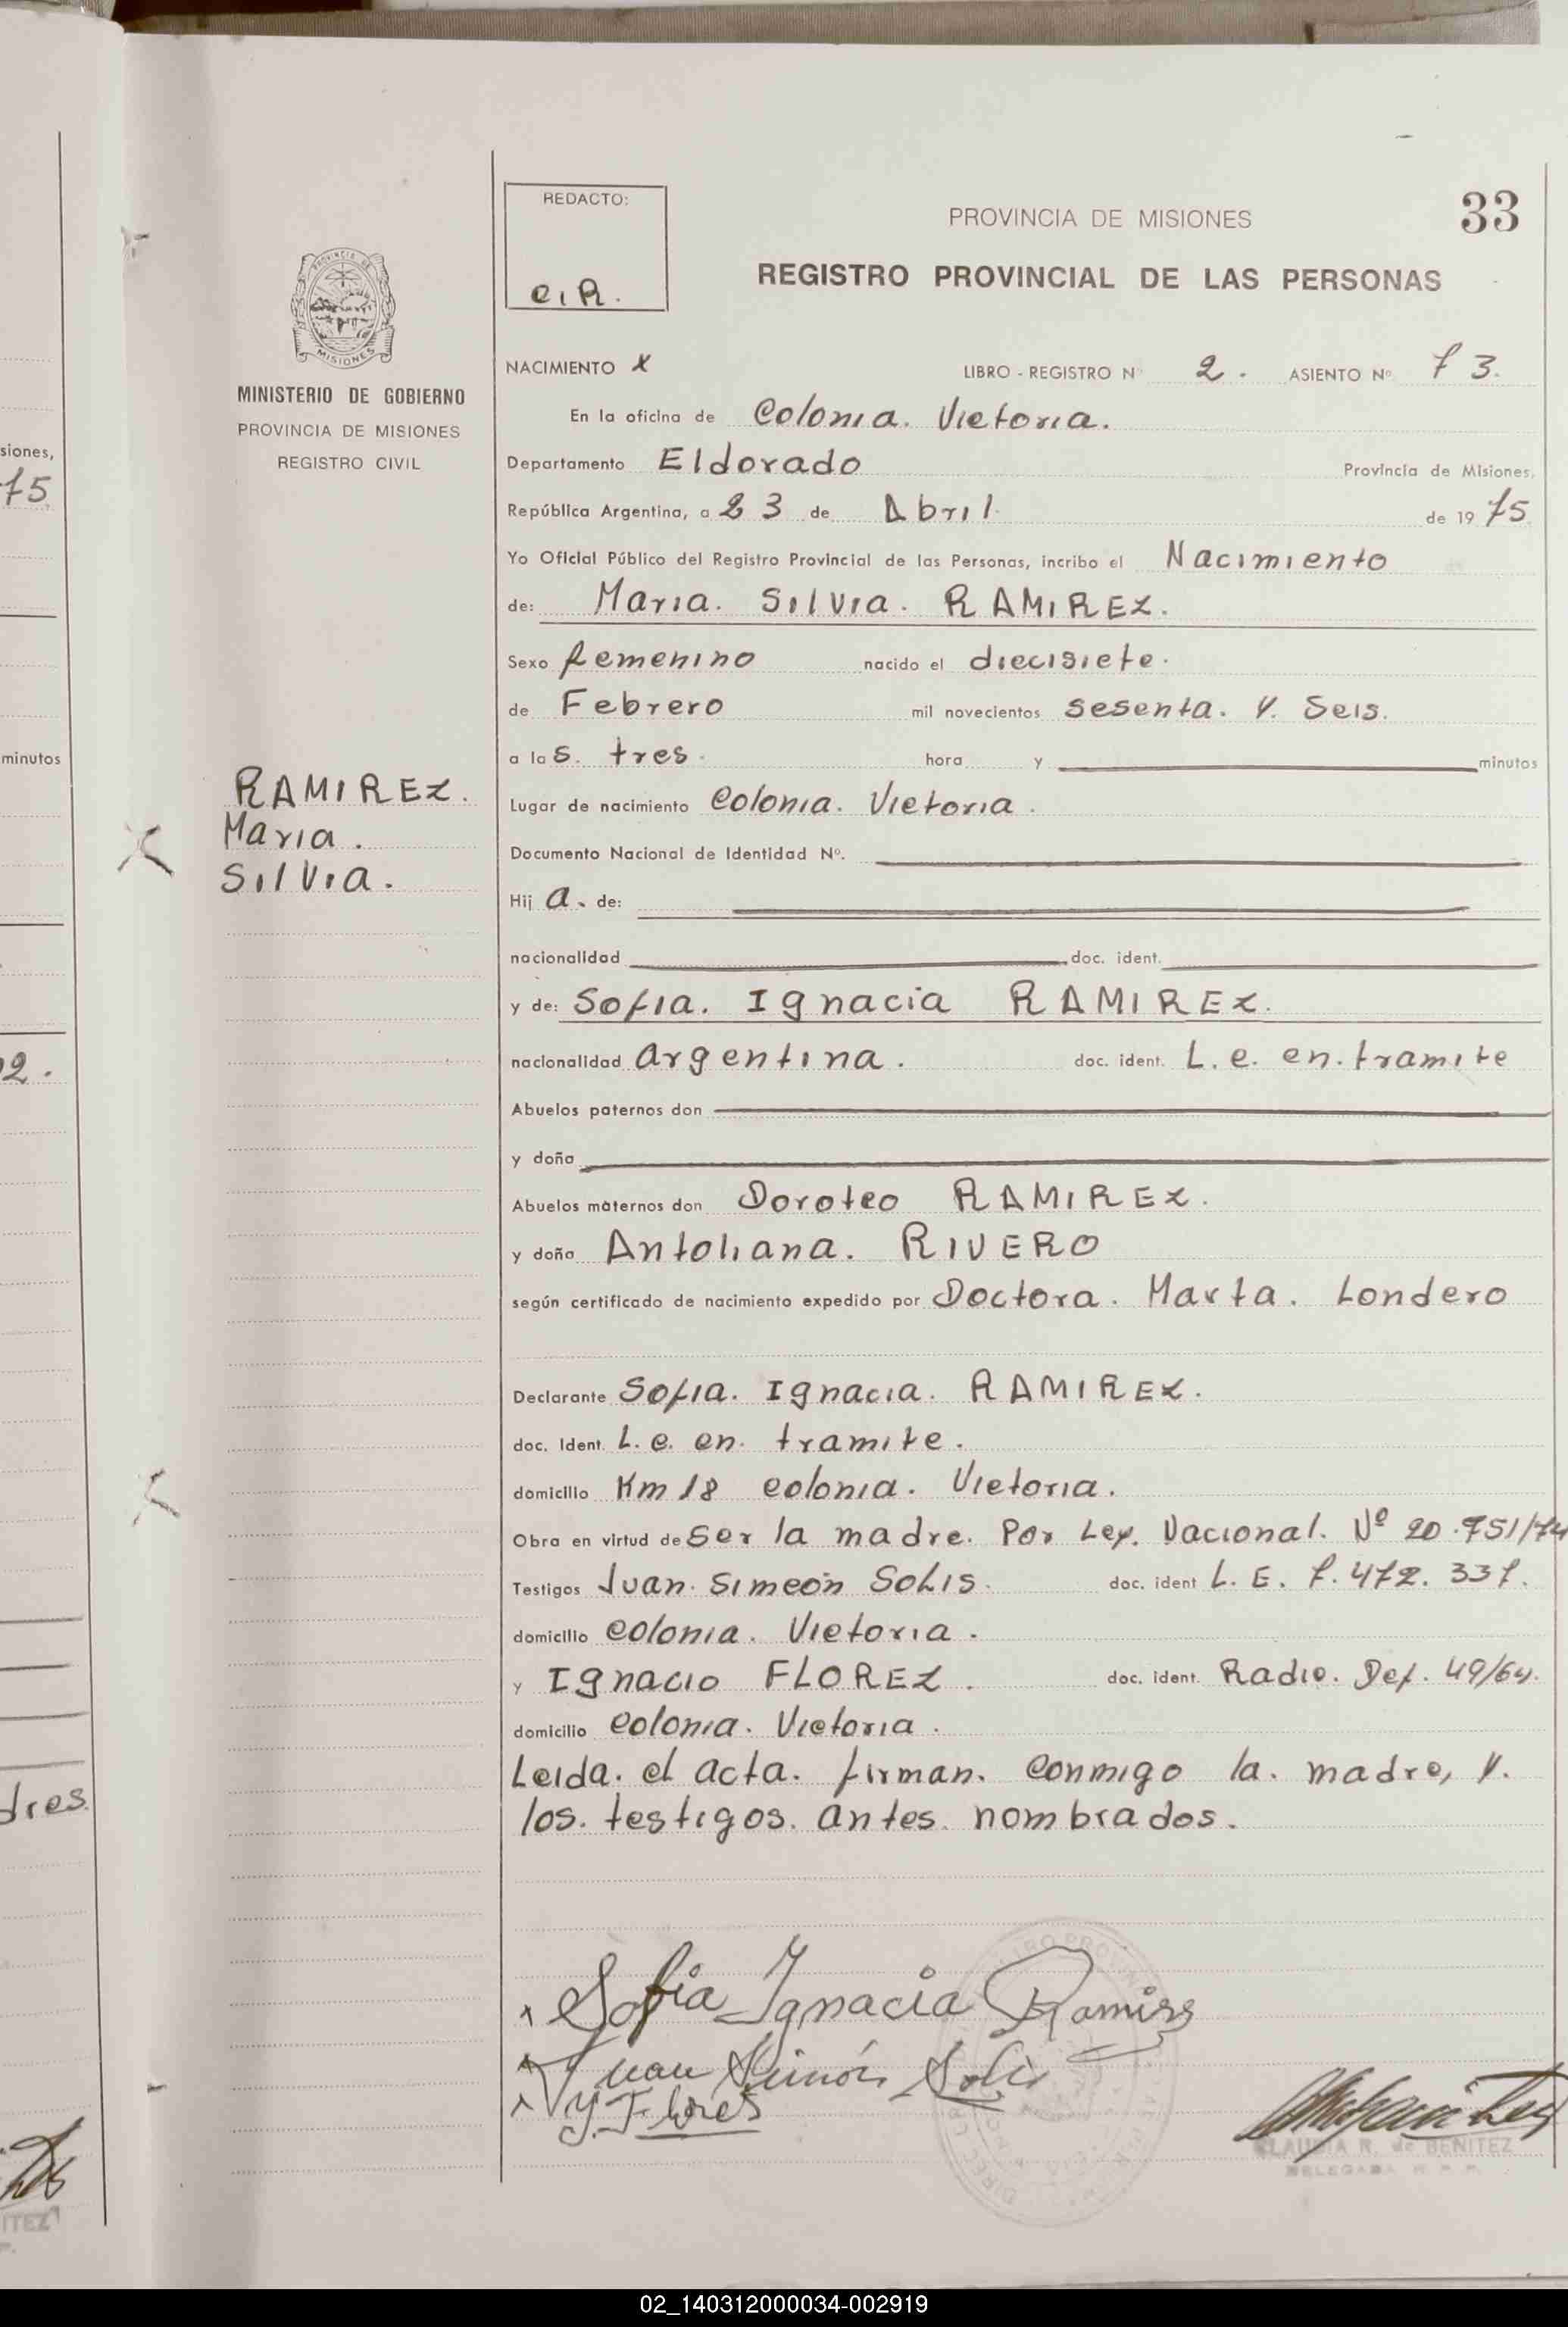 siones,
75
minutos
2.
dres.
ITEZ
PROVINCIA DE
MISIONES
MINISTERIO DE GOBIERNO
PROVINCIA DE MISIONES
REGISTRO CIVIL
RAMIREZ.
Maria.
Silvia.
REDACTO:
C.R.
PROVINCIA DE MISIONES
33
REGISTRO PROVINCIAL DE LAS PERSONAS
NACIMIENTO X LIBRO - REGISTRO Nº 2. ASIENTO Nº 73.
En la oficina de Colonia. Victoria.
Departamento Eldorado Provincia de Misiones.
República Argentina, a 23 de Abril. de 19 75
Yo Oficial Público del Registro Provincial de las Personas, incribo el Nacimiento
de: Maria. Silvia. RAMIREZ.
Sexo femenino nacido el diecisiete.
de Febrero mil novecientos sesenta. y. Seis.
a las. tres. hora y minutos
Lugar de nacimiento Colonia. Victoria.
Documento Nacional de Identidad Nº.
Hij a. de:
nacionalidad doc. ident.
y de: Sofia. Ignacia RAMIREZ.
nacionalidad argentina. doc. ident. L.e. en. tramite
Abuelos paternos don
y doña
Abuelos maternos don Doroteo RAMIREZ.
y doña Antoliana. RIVERO
según certificado de nacimiento expedido por Doctora. Marta. Londero
Declarante Sofia. Ignacia. RAMIREZ.
doc. Ident. L.e. en. tramite.
domicilio Km 18 colonia. Victoria.
Obra en virtud de Ser la madre. Por Ley. Nacional. Nº 20.751/74
Testigos Juan. Simeón SOLIS. doc. ident L.E. 7.472.337.
domicilio colonia. Victoria.
y Ignacio FLOREZ. doc. ident. Radic. Def. 49/64.
domicilio colonia. Victoria.
Leida. el acta. firman. conmigo la. madre, y.
los. testigos. antes. nombrados.
Sofia Ignacia Ramirs
Juan Simón Solis
Y. Flores
CLAUDIA R. de BENITEZ
DELEGADA R. P. P.
02_140312000034-002919